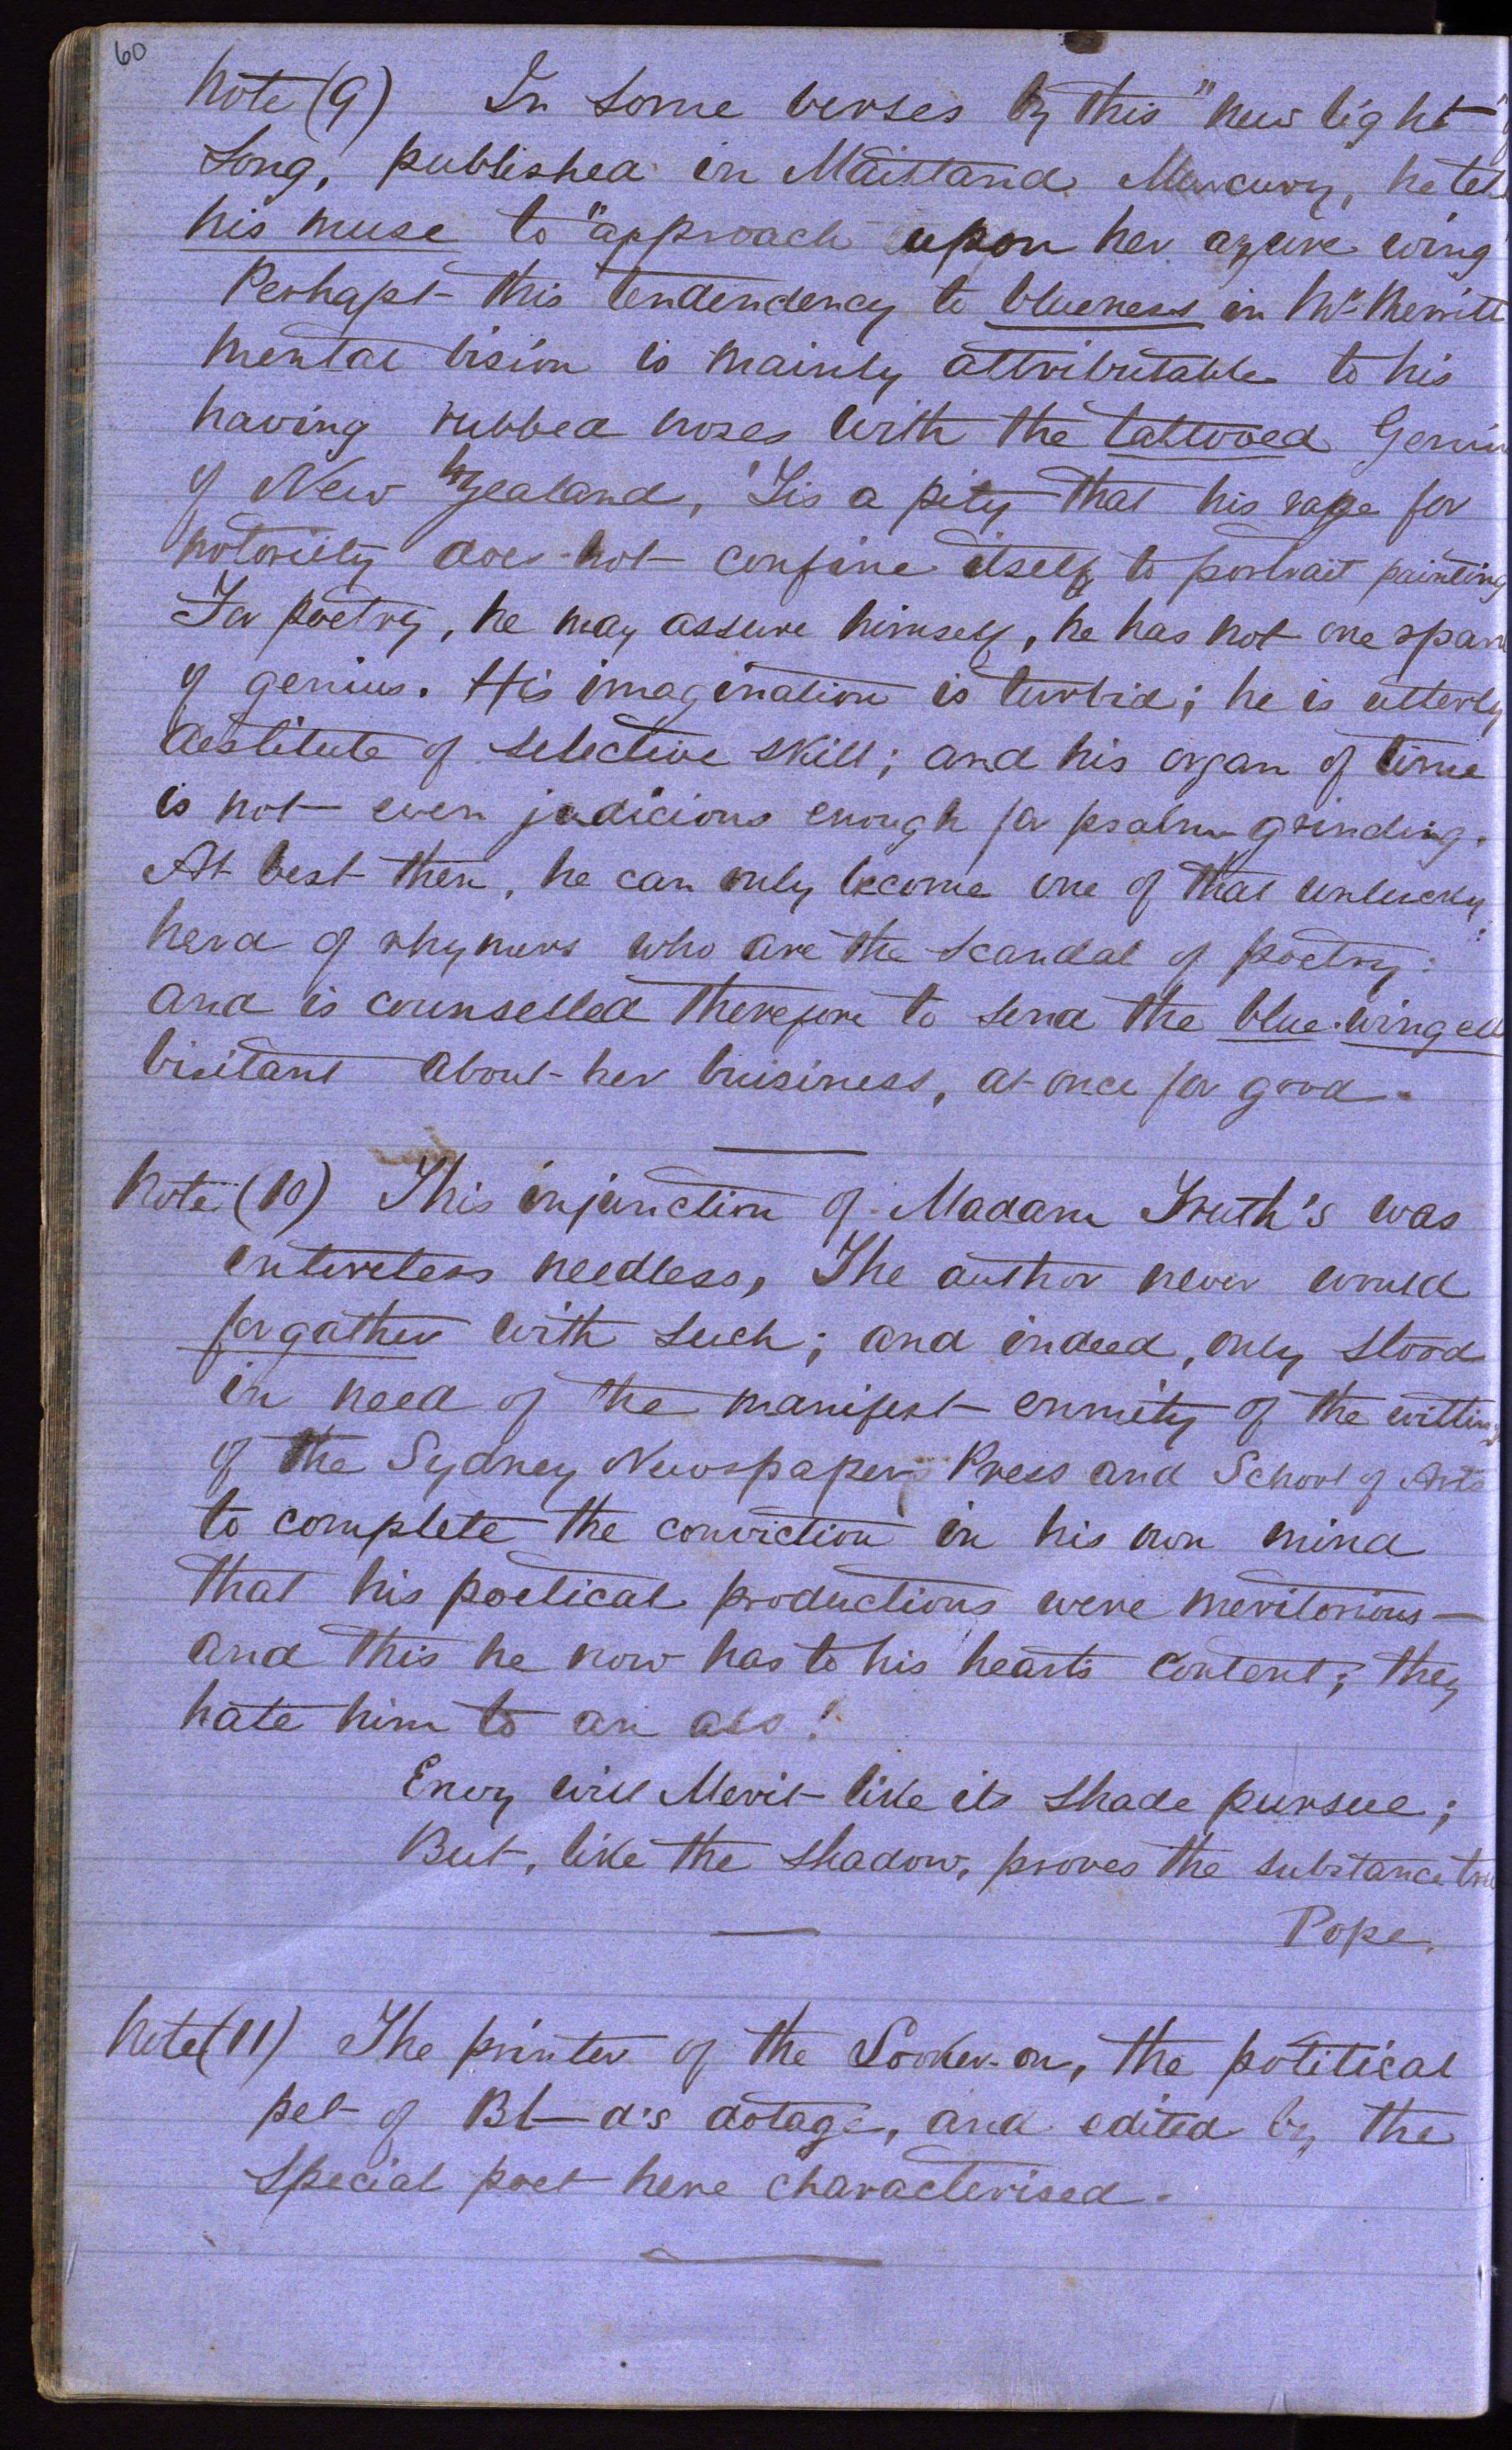 60
Note (9) In some verses by this "new light"
Song, published in Maitland Mercury, he tel
his muse to "approach upon her azure wing"
Perhaps this tendendency to blueness in Mr Merritt
mental vision is mainly attributable to his
having rubbed noses with the tattooed Geniu
of New Zealand, 'Tis a pity that his rage for
notoriety does not confine itself to portrait painting
For poetry, he may assure himself, he has not one spark
of genius. His imagination is turbid; he is utterly
destitute of selective skill; and his organ of time
is not even judicious enough for psalm-grinding.
At best then, he can only become one of that unlucky
herd of rhymers who are the scandal of poetry:
and is counselled therefore to send the blue-winged
visitant about her buisiness, at once for good.
Note (10) This injunction of Madam Truth's was
entireless needless, The author never would
forgather with such; and indeed, only stood
in need of the manifest enmity of the witling
of the Sydney Newspaper Press and School of Arts
to complete the conviction in his own mind
that his poetical productions were meritorious—
and this he now has to his hearts content; they
hate him to an ass!
Envy will Merit like its shade pursue;
But, like the shadow, proves the substance true
Pope.
Note (11) The printer of the Looker-on, the political
pet of Bl—d's dotage, and edited by the
special poet here characterised.